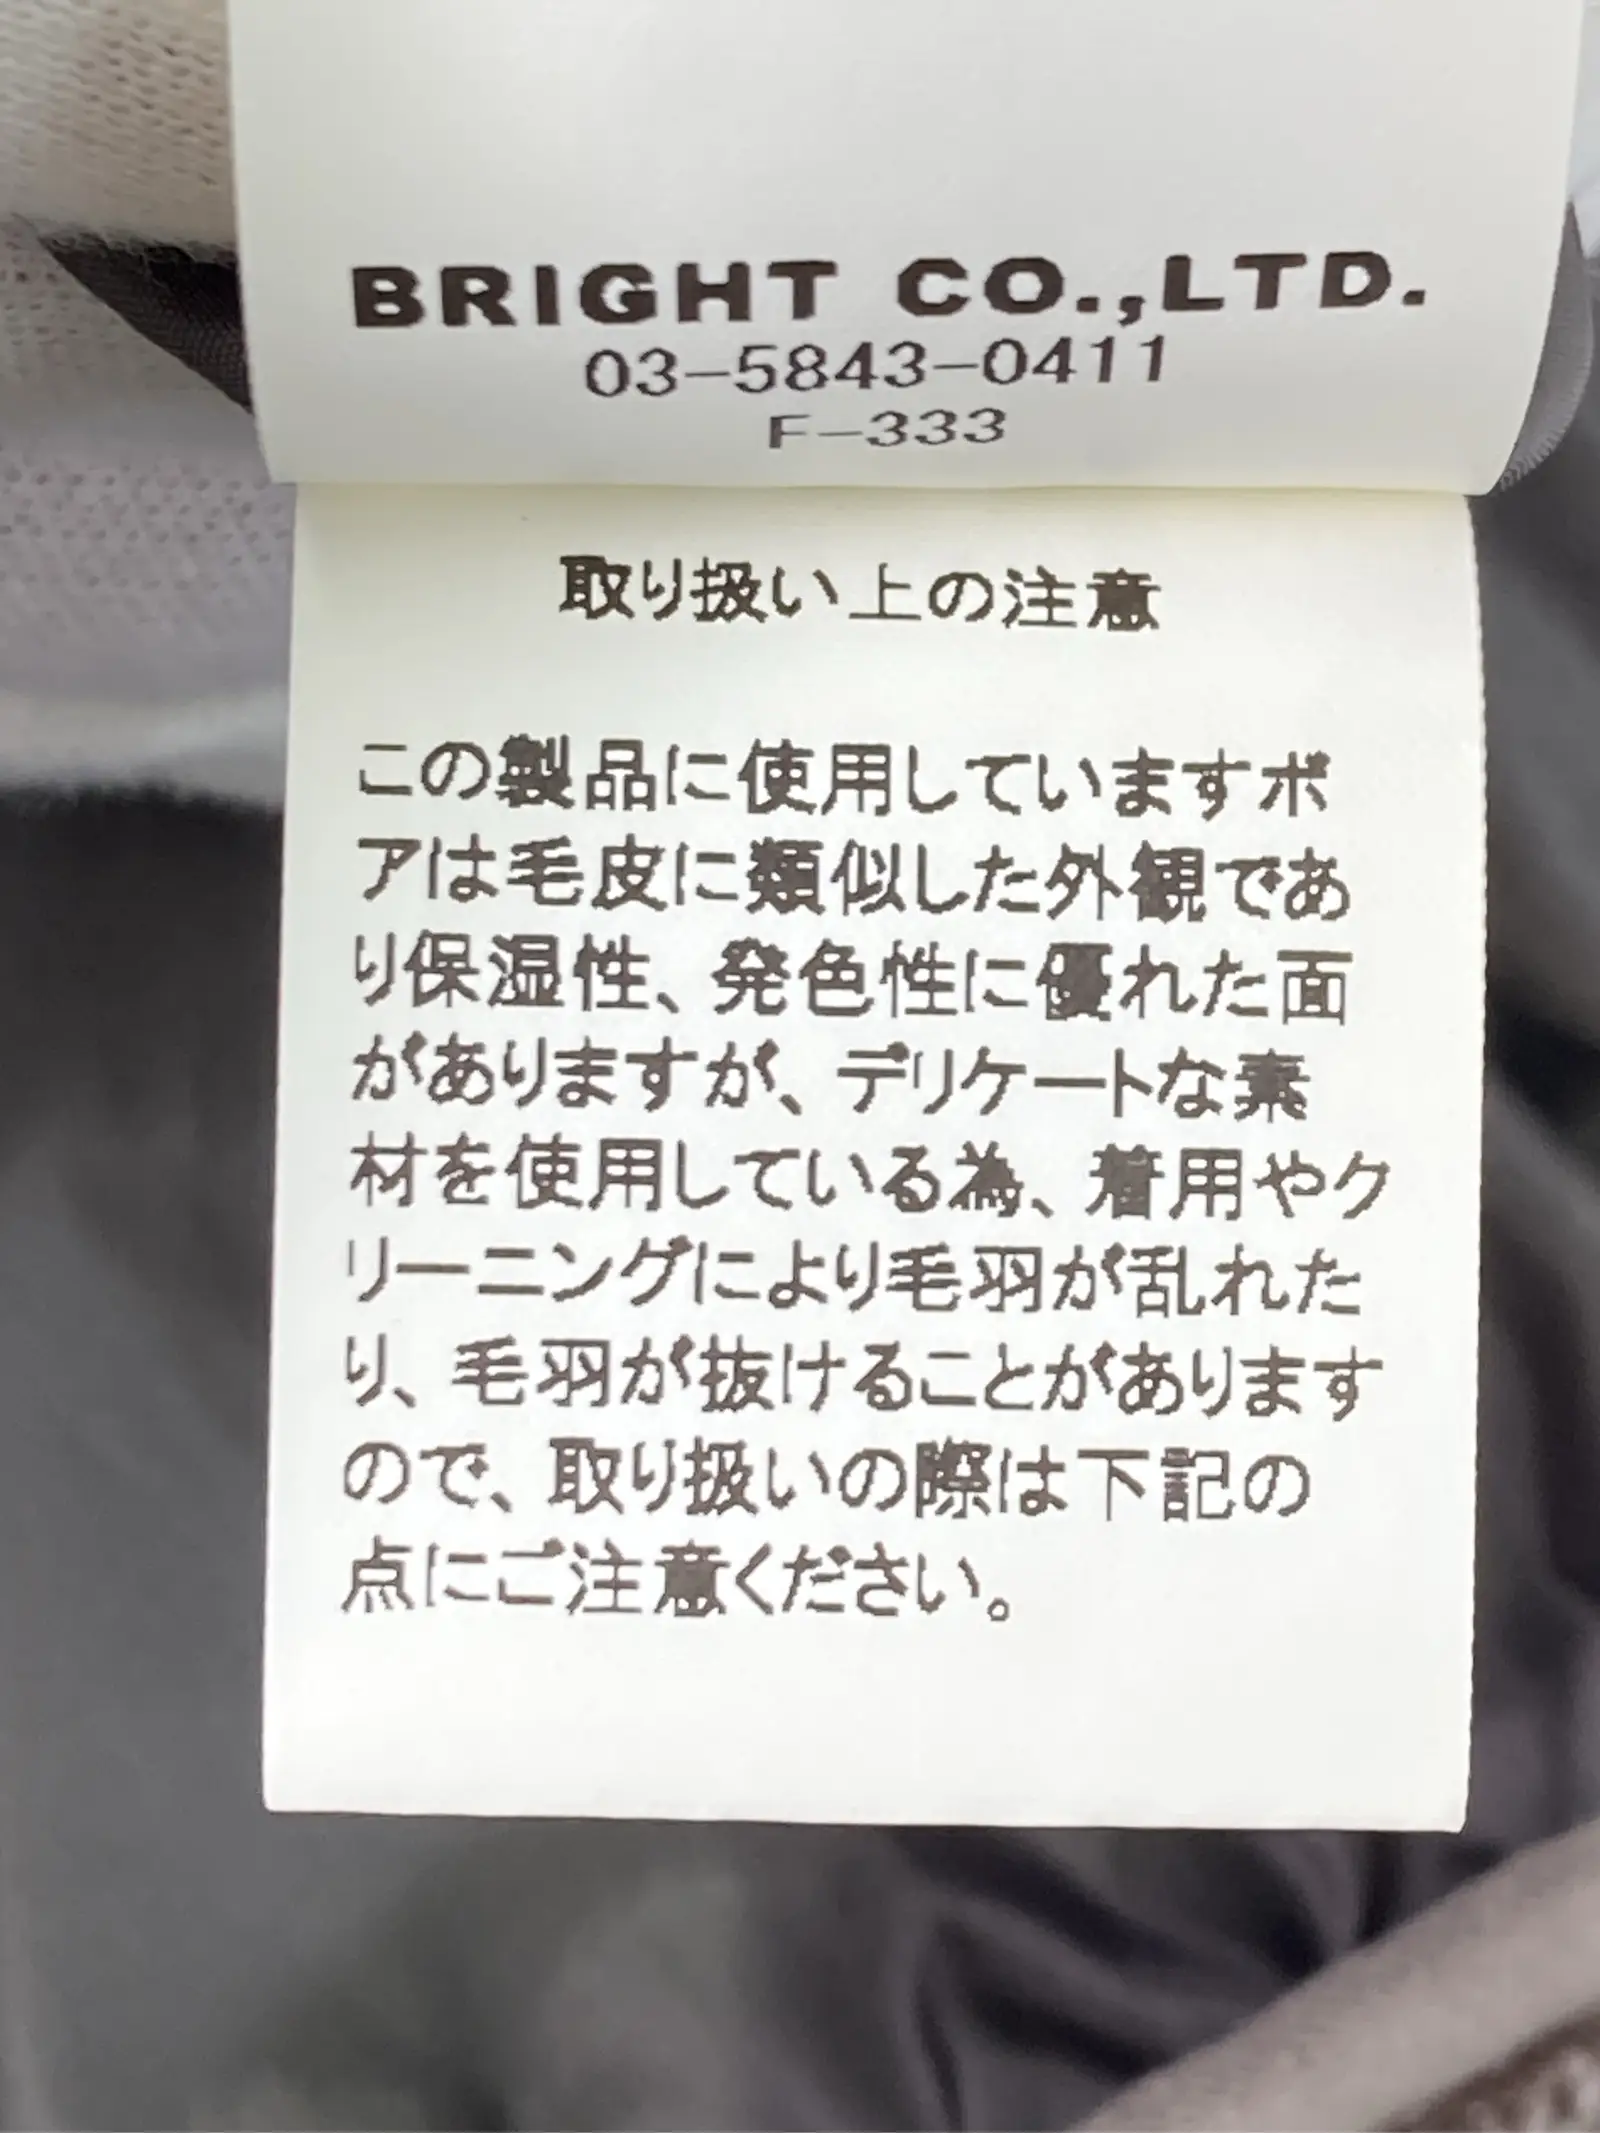 BRIGHT CO.,LTD.
03-5843-0411
F-333
取り扱い上の注意
この製品に使用していますボ
アは毛皮に類似した外観であ
り保湿性、発色性に優れた面
がありますが、デリケートな素
材を使用している為、着用やク
リーニングにより毛羽が乱れた
り、毛羽が抜けることがあります
ので、取り扱いの際は下記の
点にご注意ください。